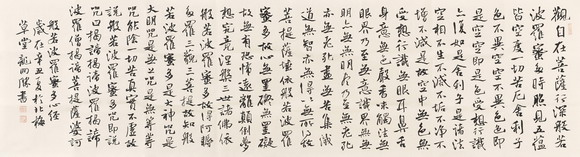 觀自在菩薩行深般若
波羅蜜多時照見五蘊
皆空度一切苦厄舍利子
色不異空空不異色色即
是空空即是色受想行識
亦復如是舍利子是諸法
空相不生不滅不垢不淨不
增不減是故空中無色無
受想行識無眼耳鼻舌
身意無色聲香味觸法無
眼界乃至無意識界無無
明亦無無明盡乃至無老死
亦無老死盡無苦集滅
道無智亦無得以無所得故
菩提薩埵依般若波羅
蜜多故心無罣礙無罣礙
故無有恐怖遠離顛倒夢
想究竟涅槃三世諸佛依
般若波羅蜜多故得阿耨
多羅三藐三菩提故知般
若波羅蜜多是大神咒是
大明咒是無上咒是無等等
咒能除一切苦真實不虛故
說般若波羅蜜多咒即說
咒曰揭諦揭諦波羅揭諦
波羅僧揭諦菩提薩婆訶
般若波羅蜜多心經
歲在辛丑夏於北梅
草堂 書